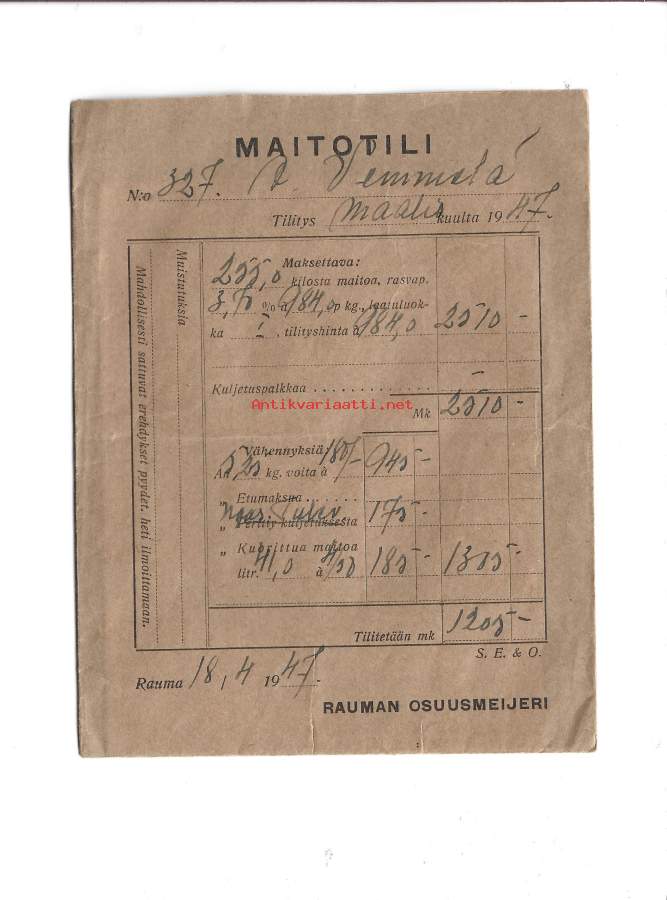 MAITOTILI
N:o 327. Vemmelä
Tilitys maalis kuulta 1947.
Muistutuksia
Mahdollisesti sattuvat erehdykset pyydet. heti ilmoittamaan.
Maksettava:
255,0 kilosta maitoa, rasvap.
3,70 % à 184,0 p kg., laatuluok-
ka I, tilityshinta à 184,0 2510 -
Kuljetuspalkkaa . . . . . . . . . . . . . -
Antikvariaatti.net
Mk 2510 -
Vähennyksiä 180/-
An 5,25 kg. voita à 945 -
„ Etumaksua . . . . . .
„ Peritty kuljetuksesta 175 -
„ Kuorittua maitoa
litr. 41,0 à 4/50 185 - 1305 -
Tilitetään mk 1205 -
S. E. & O.
Rauma 18/4 1947.
RAUMAN OSUUSMEIJERI